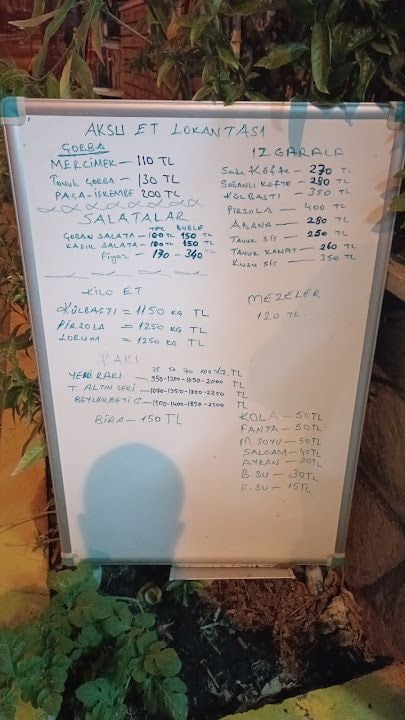 AKSU ET LOKANTASI
ÇORBA
MERCİMEK — 110 TL
Tavuk çorba — 130 TL
PAÇA-İŞKEMBE 200 TL
SALATALAR
TEK DUBLE
ÇOBAN SALATA — 100 TL 150 TL
KAŞIK SALATA — 100 TL 150 TL
Piyaz — 170 - 340 TL
KİLO ET
KÜLBASTI = 1150 KG TL
PİRZOLA = 1250 KG TL
LOKUM = 1250 KG TL
RAKI
35 50 70 100 LZ.
YENİ RAKI — 950-1200-1650-2000 TL
T. ALTIN SERİ — 1050-1350-1800-2250 TL
BEYLERBEYİ G. -1400-1850-2300 TL
BİRA — 150 TL
IZGARALA
Sade Köfte — 270 TL
SOĞANLI KÖFTE — 280 TL
KÜLBASTI — 350 TL
PİRZOLA — 400 TL
ADANA — 280 TL
TAVUK ŞİŞ — 250 TL
TAVUK KANAT — 260 TL
KUZU ŞİŞ — 350 TL
MEZELER
120 TL.
KOLA — 50 TL
FANTA — 50 TL
M. SUYU — 50 TL
ŞALGAM — 40 TL
AYRAN — 30 TL
B. SU — 30 TL
K. SU — 15 TL